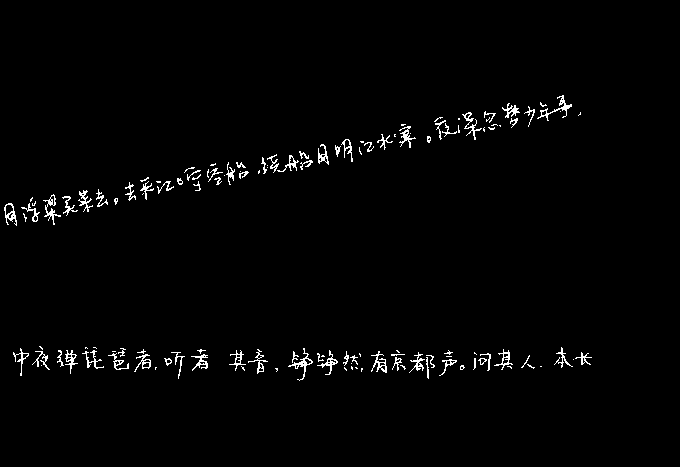 月浮梁买茶去。去来江口守空船,绕船月明江水寒。夜深忽梦少年事,
中夜弹琵琶者,听者 其音,铮铮然,有京都声。问其人.本长